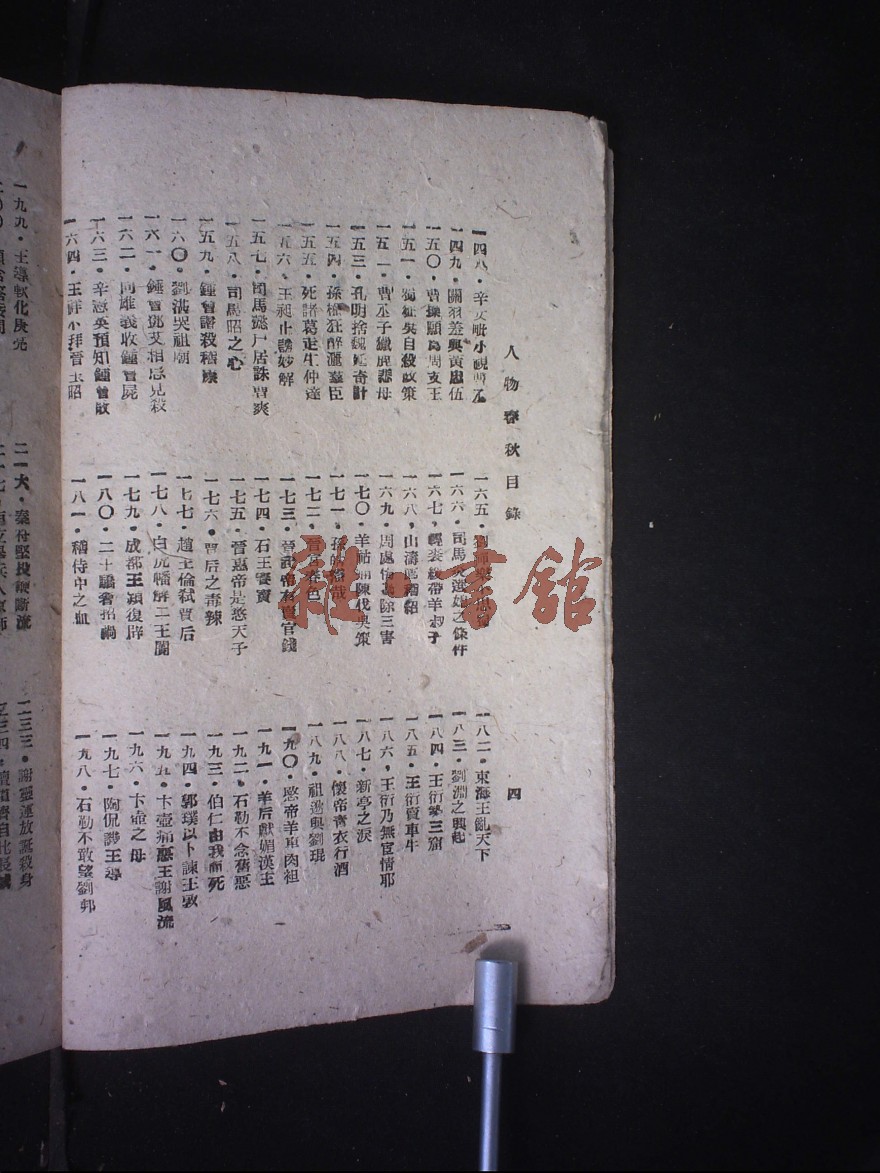 人物春秋目錄
四
一四八·辛女毗小視曹丕
一四九·關羽羞與黃忠伍
一五〇·曹操願爲周文王
一五一·獨征吳自殺政策
一五二·曹丕子獵鹿悲母
一五三·孔明捨魏延奇計
一五四·孫權狂醉灑羣臣
一五五·死諸葛走生仲達
一五六·王昶止謗妙解
一五七·司馬懿尸居誅曹爽
一五八·司馬昭之心
一五九·鍾會譖殺嵇康
一六〇·劉諶哭祖廟
一六一·鍾會鄧艾相忌見殺
一六二·向雄義收鍾會屍
一六三·辛憲英預知鍾會敗
一六四·王祥不拜晉王昭
一六五·劉禪樂不思蜀
一六六·司馬炎選妃之條件
一六七·輕裘緩帶羊叔子
一六八·山濤薦嵇紹
一六九·周處爲除三害
一七〇·羊祜病陳伐吳策
一七一·孫皓
一七二·晉宮春色
一七三·晉武帝有賣官錢
一七四·石王賽寶
一七五·晉惠帝是憨天子
一七六·賈后之毒辣
一七七·趙王倫弒賈后
一七八·白虎幡解二王鬭
一七九·成都王穎復辟
一八〇·二十騎奢招禍
一八一·嵇侍中之血
一八二·東海王亂天下
一八三·劉淵之興起
一八四·王衍營三窟
一八五·王衍賣車牛
一八六·王衍乃無宦情耶
一八七·新亭之淚
一八八·懷帝青衣行酒
一八九·祖逖與劉琨
一九〇·愍帝羊車肉袒
一九一·羊后獻媚漢主
一九二·石勒不念舊惡
一九三·伯仁由我而死
一九四·郭璞以卜諫王敦
一九五·卞壺痛惡王謝風流
一九六·卞壺之母
一九七·陶侃譏王導
一九八·石勒不敢望劉邦
一九九·王導軟化庾亮
二一六·秦苻堅投鞭斷流
二三三·謝靈運放誕殺身
雜·書館